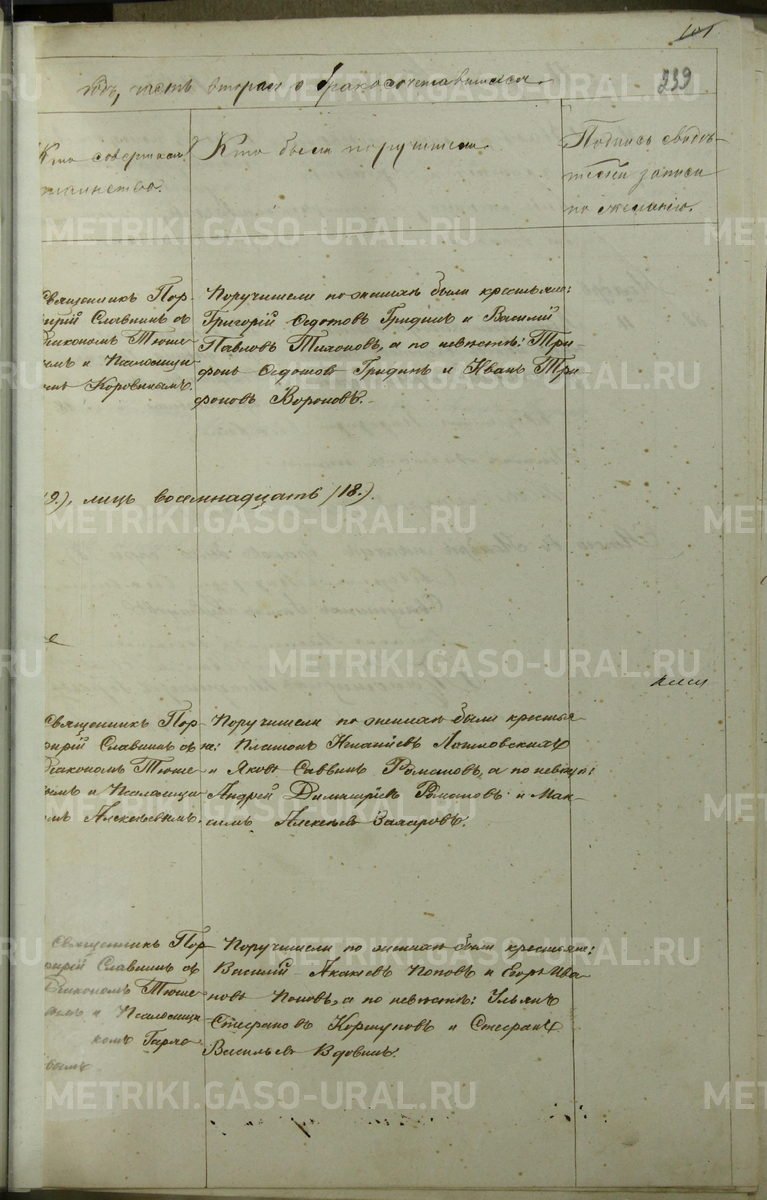 101
339
годъ, часть вторая о бракосочетавшихся.
Кто совершалъ
таинство.
Кто были поручители.
Подпись свидѣ-
телей записи
по желанію.
Священникъ Пор-
фирій Славнинъ съ
Діакономъ Тюше-
вымъ и Псаломщи-
комъ Коровинымъ.
Поручители по женихѣ были крестьяне:
Григорій Ѳедотовъ Гридинъ и Василій
Павловъ Тихоновъ, а по невѣстѣ: Три-
фонъ Ѳедотовъ Гридинъ и Иванъ Три-
фоновъ Вороновъ.
(9.), лицъ восемнадцать /18.).
Священникъ Пор-
фирій Славнинъ съ
Діакономъ Тюше-
вымъ и Псаломщи-
комъ Алексѣевымъ.
Поручители по женихѣ были крестья-
не: Платонъ Игнатіевъ
и Яковъ Саввинъ Романовъ, а по невѣстѣ:
Андрей Димитріевъ Романовъ и Мак-
симъ Алексѣевъ Захаровъ.
Священникъ Пор-
фирій Славнинъ съ
Діакономъ Тюше-
вымъ и Псаломщи-
комъ
Поручители по женихѣ были крестьяне:
Василій Акакіевъ Поповъ и Егоръ Ива-
новъ Поповъ, а по невѣстѣ: Ульянъ
Стефановъ Коршуновъ и Стефанъ
Васильевъ Вдовинъ.
METRIKI.GASO-URAL.RU